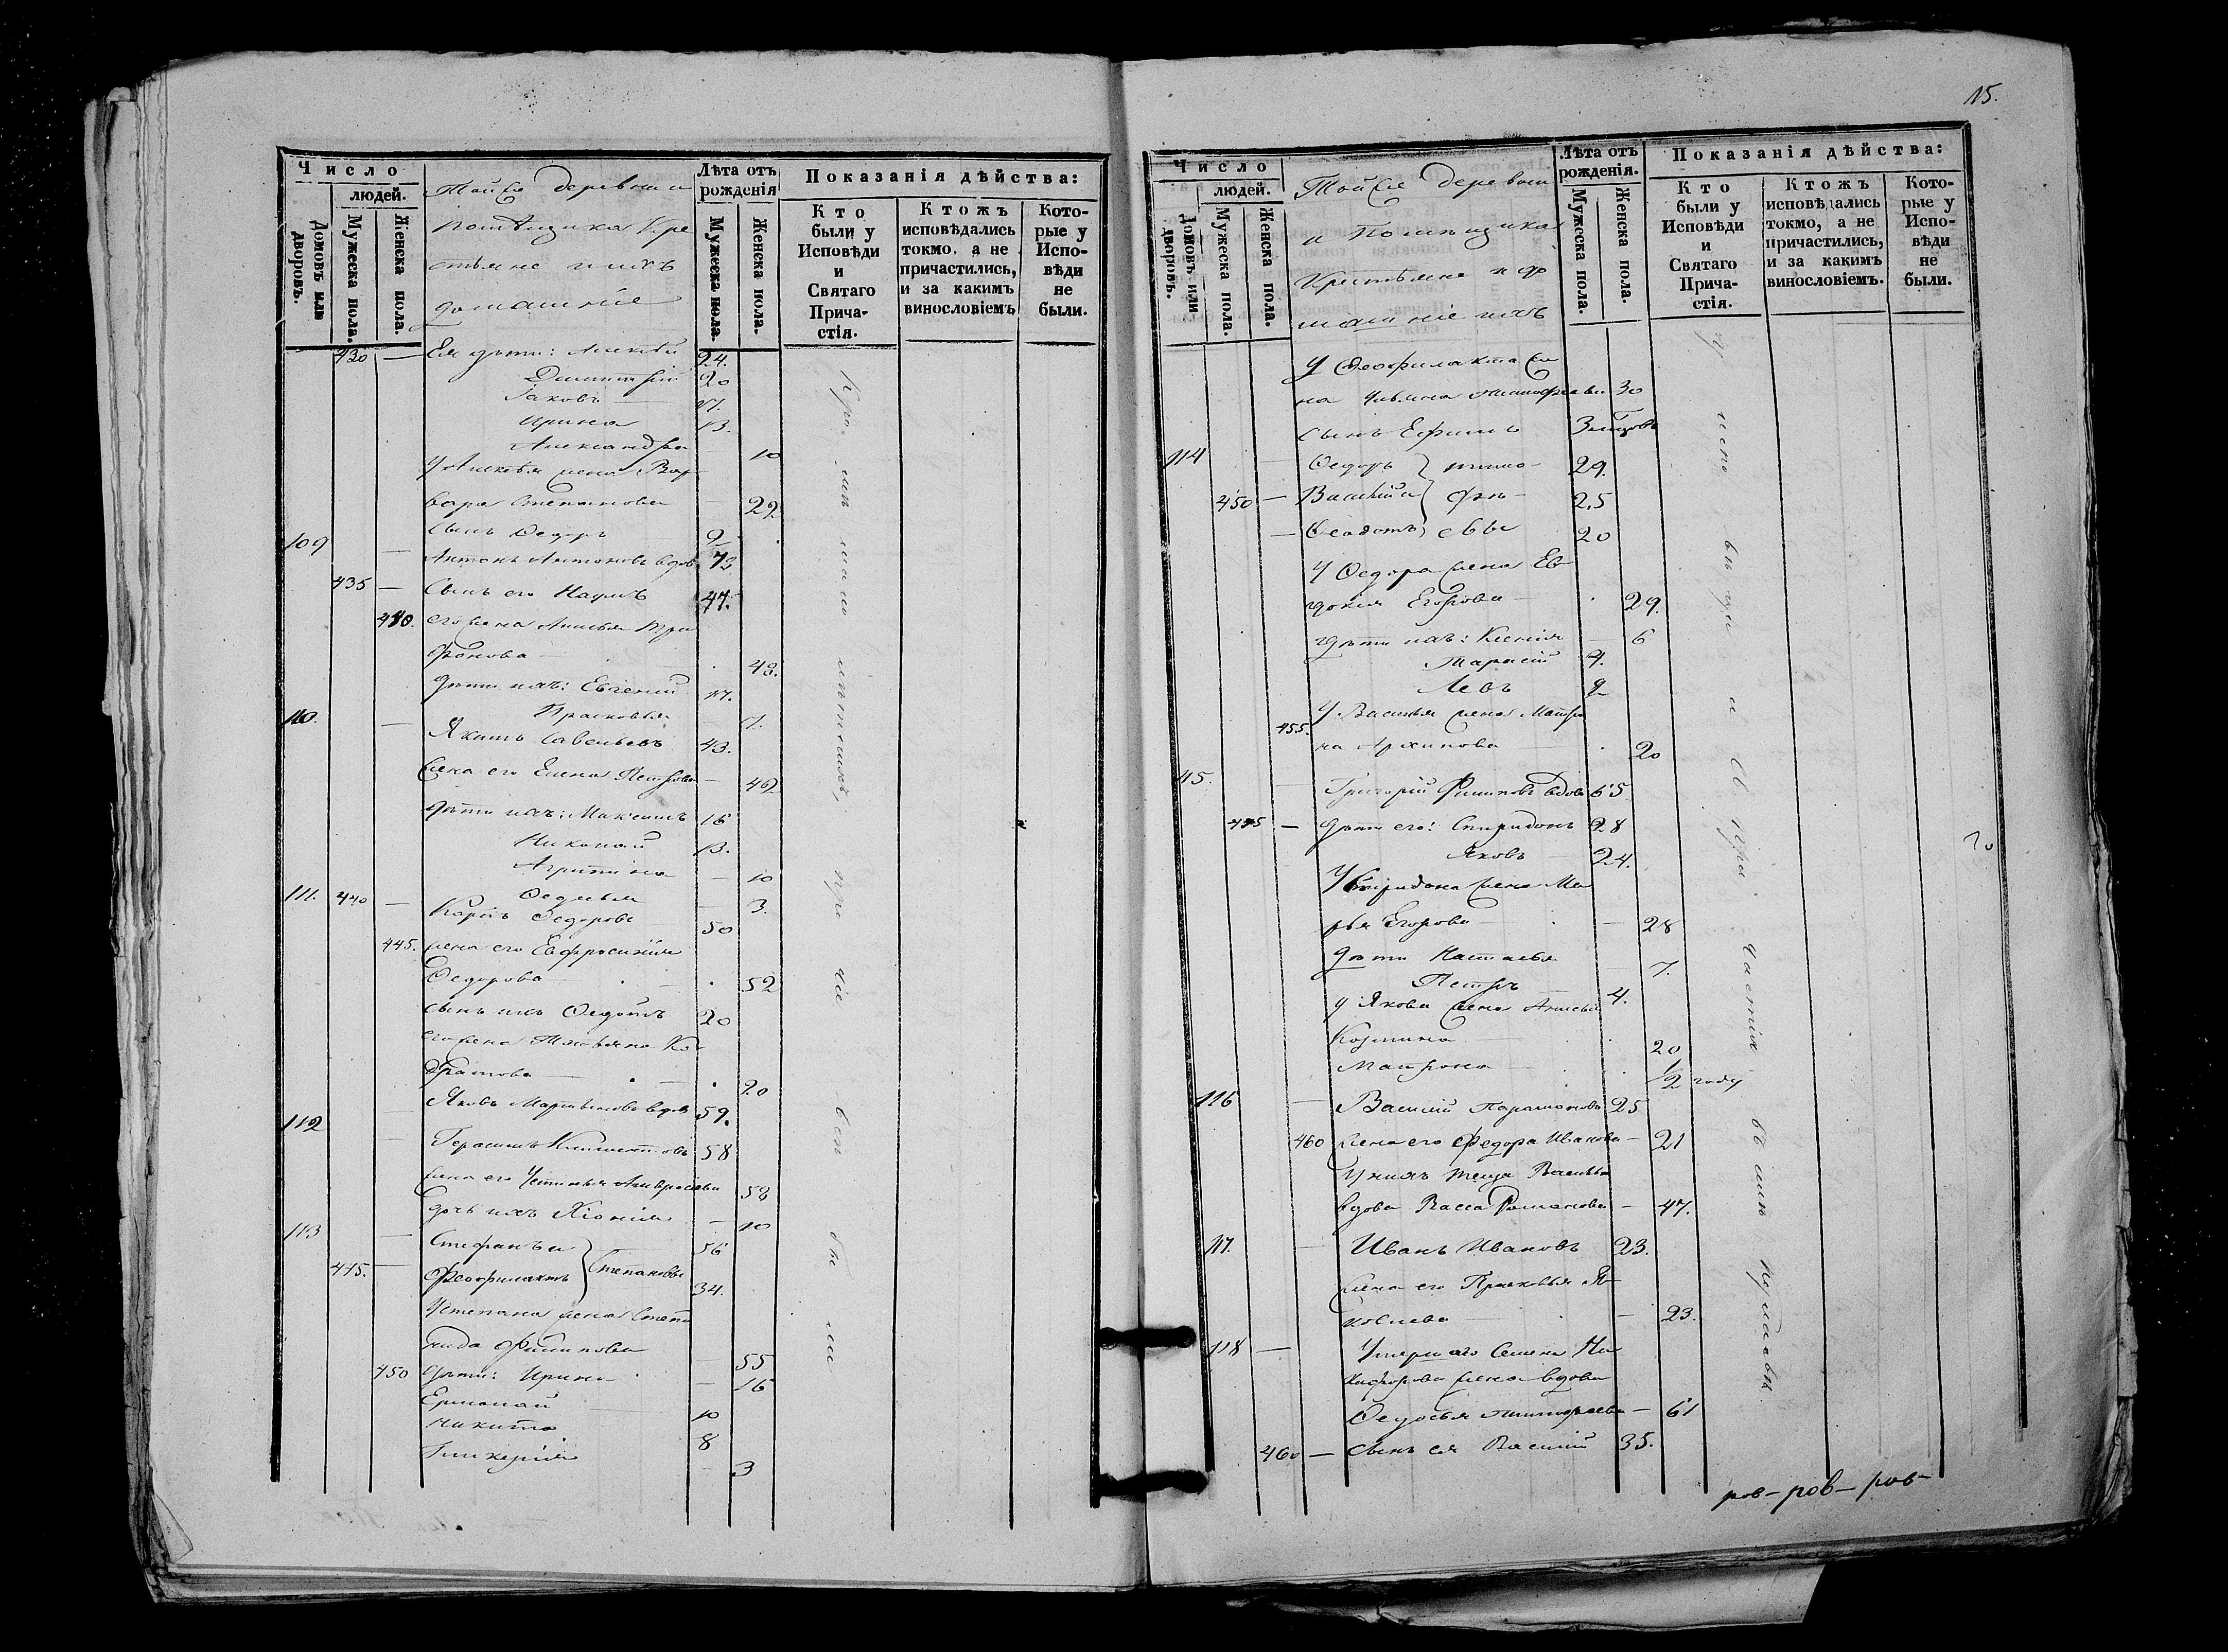 Число
людей.
Домовъ или дворовъ.
Мужеска пола.
Женска пола.
Тойже деревни
помѣщика Кре
стьяне и ихъ
домашніе
Лѣта отъ рожденія
Мужеска пола.
Женска пола.
Показанія дѣйства:
Кто были у Исповѣди и Святаго Прича-стія.
Ктожъ исповѣдались токмо, а не причастились, и за какимъ винословіемъ
Кото-рые у Испо-вѣди не были.
430 — Ея дѣти: Алексѣй 24.
Димитрій 20
Іаковъ — 17.
Ирина 13.
Александра — 10
У Алексѣя жена Вар
вара Степанова — 29
Сынъ Ѳедоръ 2
109 — Антонъ Антоновъ вдов 73
435 — Сынъ его Наумъ 47.
его жена Анисья Три
фонова — 43.
Дѣти ихъ: Евгеній 17.
Прасковья — 7.
110. — Якимъ Савельевъ 43.
Жена его Елена Петрова — 42
Дѣти ихъ: Максимъ 16
Николай 13.
Агрипина — 10
Ѳедосья — 3.
111. 440 — Карпъ Ѳедоровъ 50
445. жена его Евфросинія
Ѳедорова — 52
сынъ ихъ Ѳедотъ 20
его жена Татьяна Ко
дратова — 20
Яковъ Мартыновъ вдов 59.
112 — Герасимъ Климентовъ 58
жена его Устинья Амвросіева 58
дочь ихъ Хіонія — 10
113 — Стефанъ и 56
445. — Феофилактъ } Степановы 34.
У Степана жена Степа
нида Филипова 55
450 Дѣти: Ирина — 16
Ермолай 10
Никита 8
Гликерія — 3
15.
Число
людей.
Домовъ или дворовъ.
Мужеска пола.
Женска пола.
Тойже деревни
и Помѣщика
Крестьяне и до
машніе ихъ
Лѣта отъ рожденія.
Мужеска пола.
Женска пола.
Показанія дѣйства:
Кто были у Исповѣди и Святаго Прича-стія.
Ктожъ исповѣдались токмо, а не причастились, и за какимъ винословіемъ.
Кото-рые у Испо-вѣди не были.
У Феофилакта же
на Ульяна Тимофеева 30
сынъ Ефимъ
114 — Ѳедоръ } Тимо- 29.
450 — Василій и } фѣ- 25
— Ѳеодотъ } евы 20
У Ѳедора жена Ев
докія Егорова — 29.
дѣти ихъ: Ксенія — 6
Тарасій 4.
Левъ 2
455. У Василья жена Матре
на Архипова 20
115. — Григорій Филиповъ вдовъ 65
455 — Дѣти его: Спиридонъ 28
Яковъ 24.
У Спиридона жена Ма
рья Егорова — 28
Дѣти Настасья — 7.
Петръ 4.
У Якова жена Анисья
Козмина — 20
Матрона — 1/2 году
116 — Василій Парамоновъ 25
460 жена его Федора Иванова — 21
У нихъ теща Василья
вдова Васса Романова — 47.
117. — Иванъ Ивановъ 23.
жена его Прасковья Я-
ковлева — 23.
118 — Умершаго Семена Ни
кифорова жена вдова
Ѳедосья Тимофеева — 61
460 — сынъ ея Василій 35.
ров — ров — ров —